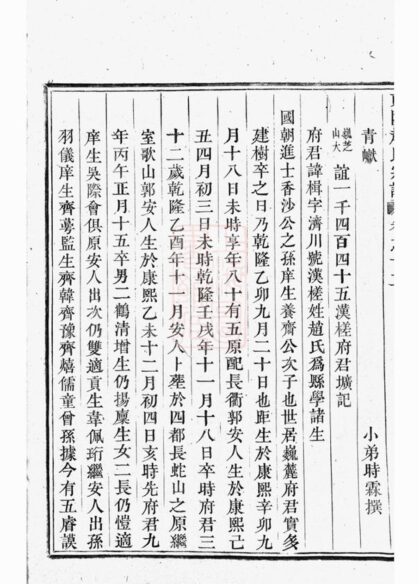 青巘
巍芝
山大
誼一千四百四十五漢槎府君壙記
小弟時霖撰
府君諱楫字濟川號漢槎姓趙氏爲縣學諸生
國朝進士香沙公之孫庠生養齋公次子也世居巍麓府君實多
建樹卒之日乃乾隆乙卯九月二十日也距生於康熙辛卯九
月十八日未時享年八十有五原配長衢郭安人生於康熙己
丑四月初三日未時乾隆壬戌年十一月十八日卒時府君三
十二歲乾隆乙酉年十二月安人卜塟於四都長蛇山之原繼
室歌山郭安人生於康熙乙未十二月初四日亥時先府君九
年丙午正月十五卒男二鶴清增生仍揚廩生女二長仍愷適
庠生吳際會俱原安人出次仍雙適貢生韋佩珩繼安人出孫
羽儀庠生齊蕚監生齊韓齊豫齊嬉儒童曾孫據今有五睿謨